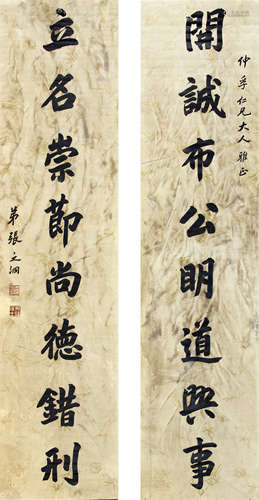 仲孚仁兄大人雅正
開誠布公明道興事
立名崇節尚德錯刑
弟張之洞